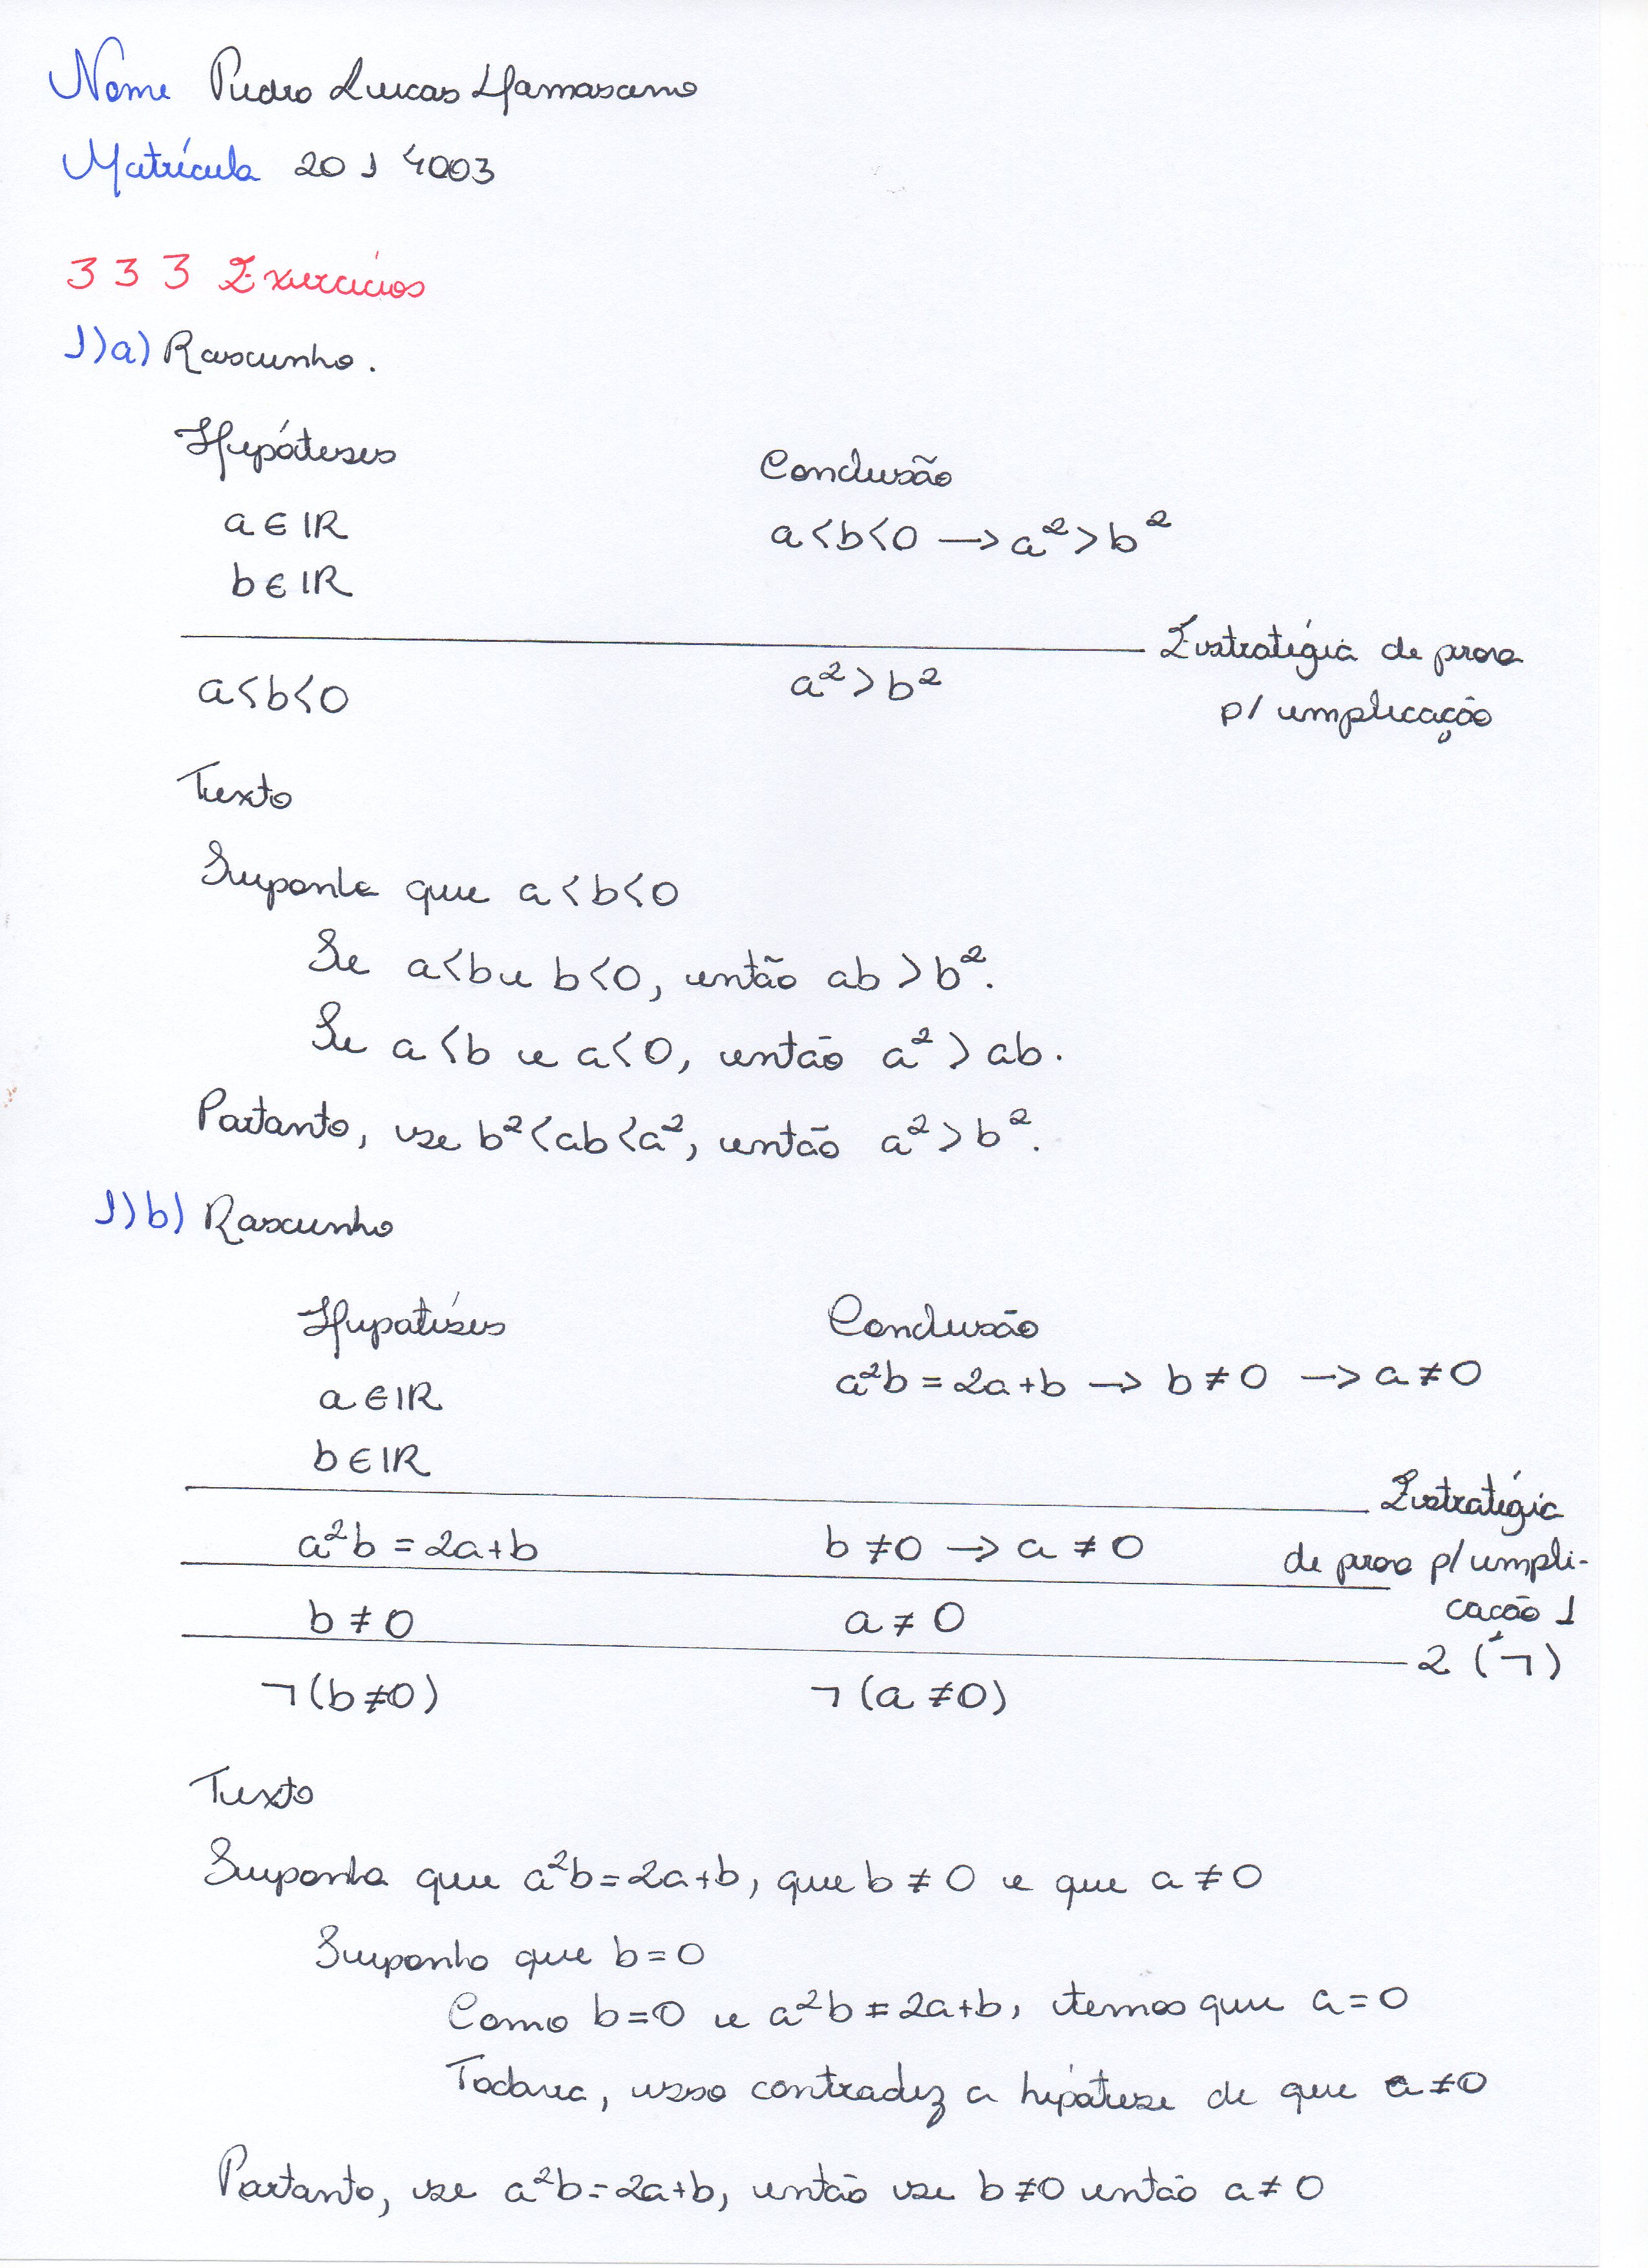 Nome Pedro Lucas Damasceno
Matrícula 20 1 4003
3 3 3 Exercícios
1)a) Rascunho.
Hipóteses Conclusão
a ∈ IR a<b<0 → a² > b²
b ∈ IR
Estratégia de prova
a<b<0 a² > b² p/ implicação
Texto
Suponha que a<b<0
Se a<b e b<0, então ab > b².
Se a<b e a<0, então a² > ab.
Portanto, se b²<ab<a², então a² > b².
1)b) Rascunho
Hipotéses Conclusão
a ∈ IR a²b = 2a+b → b ≠ 0 → a ≠ 0
b ∈ IR
Estratégia
a²b = 2a+b b ≠ 0 → a ≠ 0 de prova p/ impli-
b ≠ 0 a ≠ 0 cação 1
2 (¬)
¬(b ≠ 0) ¬(a ≠ 0)
Texto
Suponha que a²b = 2a+b, que b ≠ 0 e que a ≠ 0
Suponha que b = 0
Como b = 0 e a²b = 2a+b, temos que a = 0
Todavia, isso contradiz a hipótese de que a ≠ 0
Portanto, se a²b = 2a+b, então se b ≠ 0 então a ≠ 0